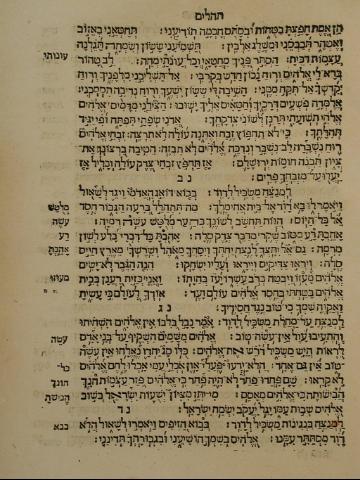 תהלים
הן אמת חפצת בטחות ובסתם חכמה תודיעני: תחטאני באזוב
ואטהר תכבסני ומשלג אלבין: תשמיעני ששון ושמחה תגלנה
עצמות דכית: הסתר פניך מחטאי וכל עונתי מחה: לב טהור
עונותי
ברא לי אלהים ורוח נכון חדש בקרבי: אל תשליכני מלפניך ורוח
קדשך אל תקח ממני: השיבה לי ששון ישעך ורוח נדיבה תסמכני:
אלמדה פשעים דרכיך וחטאים אליך ישובו: הצילני מדמים אלהים
אלהי תשועתי תרנן לשוני צדקתך: אדני שפתי תפתח ופי יגיד
תהלתך: כי לא תחפץ זבח ואתנה עולה לא תרצה: זבחי אלהים
רוח נשברה לב נשבר ונדכה אלהים לא תבזה: היטיבה ברצונך את
ציון תבנה חומות ירושלם: אז תחפץ זבחי צדק עולה וכליל אז
יעלו על מזבחך פרים:
נב
למנצח משכיל לדוד: בבוא דואג האדמי ויגד לשאול
ויאמר לו בא דוד אל בית אחימלך: מה תתהלל ברעה הגבור חסד
אל כל היום: הוות תחשב לשונך כתער מלטש עשה רמיה:
מלטש
עשה
אהבת רע מטוב שקר מדבר צדק סלה: אהבת כל דברי בלע לשון
רע
מרמה: גם אל יתצך לנצח יחתך ויסחך מאהל ושרשך מארץ חיים
אהבת
סלה: ויראו צדיקים וייראו ועליו ישחקו: הנה הגבר לא ישים
אלהים מעוזו ויבטח ברב עשרו יעז בהותו: ואני כזית רענן בבית
מעוזו
אלהים בטחתי בחסד אלהים עולם ועד: אודך לעולם כי עשית
ואקוה שמך כי טוב נגד חסידיך:
נג
למנצח על מחלת משכיל לדוד: אמר נבל בלבו אין אלהים השחיתו
והתעיבו עול אין עשה טוב: אלהים משמים השקיף על בני אדם
עשה
לראות היש משכיל דרש את אלהים: כלו סג יחדו נאלחו אין עשה
טוב אין גם אחד: הלא ידעו פעלי און אכלי עמי אכלו לחם אלהים
לא קראו: שם פחדו פחד לא היה פחד כי אלהים פזר עצמות חנך
חונך
הבישותה כי אלהים מאסם: מי יתן מציון ישעות ישראל בשוב
אלהים שבות עמו יגל יעקב ישמח ישראל:
נד
למנצח בנגינות משכיל לדוד: בבוא הזיפים ויאמרו לשאול הלא
בבא
דוד מסתתר עמנו: אלהים בשמך הושיעני ובגבורתך תדינני: